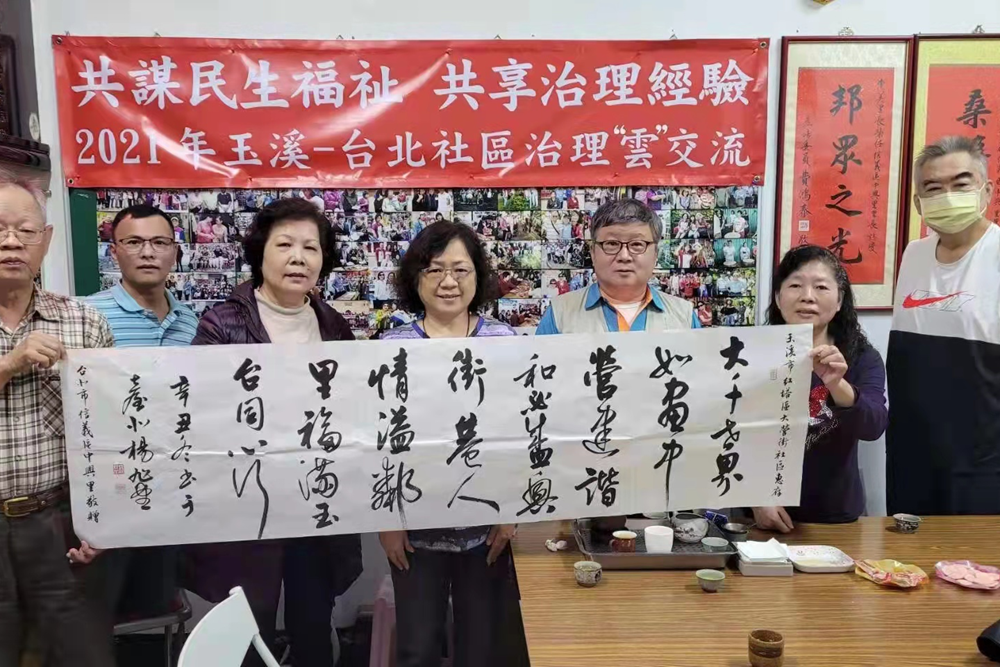 共謀民生福祉 共享治理經驗
2021年玉溪-台北社區治理“雲”交流
邦眾之光
桑
玉溪市紅塔區大營街社區惠存
大千世界
如畫中
營建諧
和
街巷人
情溢鄰
里福滿玉
台同心行
辛丑冬書于
臺北楊旭堂
台北市信義區中興里敬贈